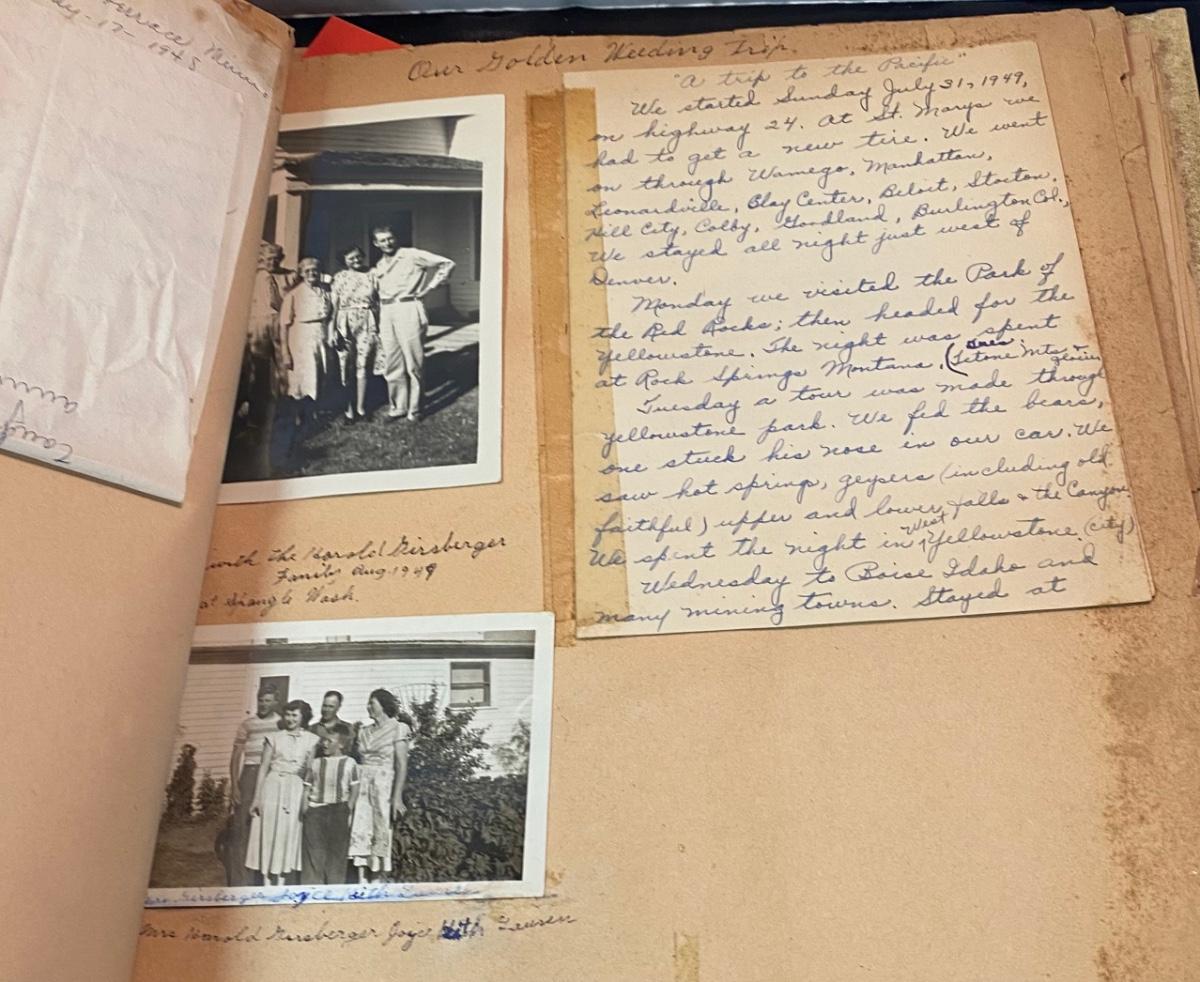 Service Mem
May-17-1945
Our Golden Weeding Trip.
with the Harold Girsberger
Family Aug. 1949
at Wash.
Girsberger Joyce Keith
Mrs Harold Girsberger Joyce Keith Lauren
"A trip to the Pacific"
We started Sunday July 31, 1949,
on highway 24. At St. Marys we
had to get a new tire. We went
on through Wamego, Manhattan,
Leonardville, Clay Center, Beloit, Stocton,
Hill City, Colby, Goodland, Burlington Col.,
We stayed all night just west of
Denver.
Monday we visited the Park of
the Red Rocks; then headed for the
Yellowstone. The night was spent
at Rock Springs Montana. (Tetone Mts &
Tuesday a tour was made through
yellowstone park. We fed the bears,
one stuck his nose in our car. We
saw hot springs, geysers (including old
faithful) upper and lower falls & the Canyon.
We spent the night in West Yellowstone (city)
Wednesday to Boise Idaho and
many mining towns. Stayed at